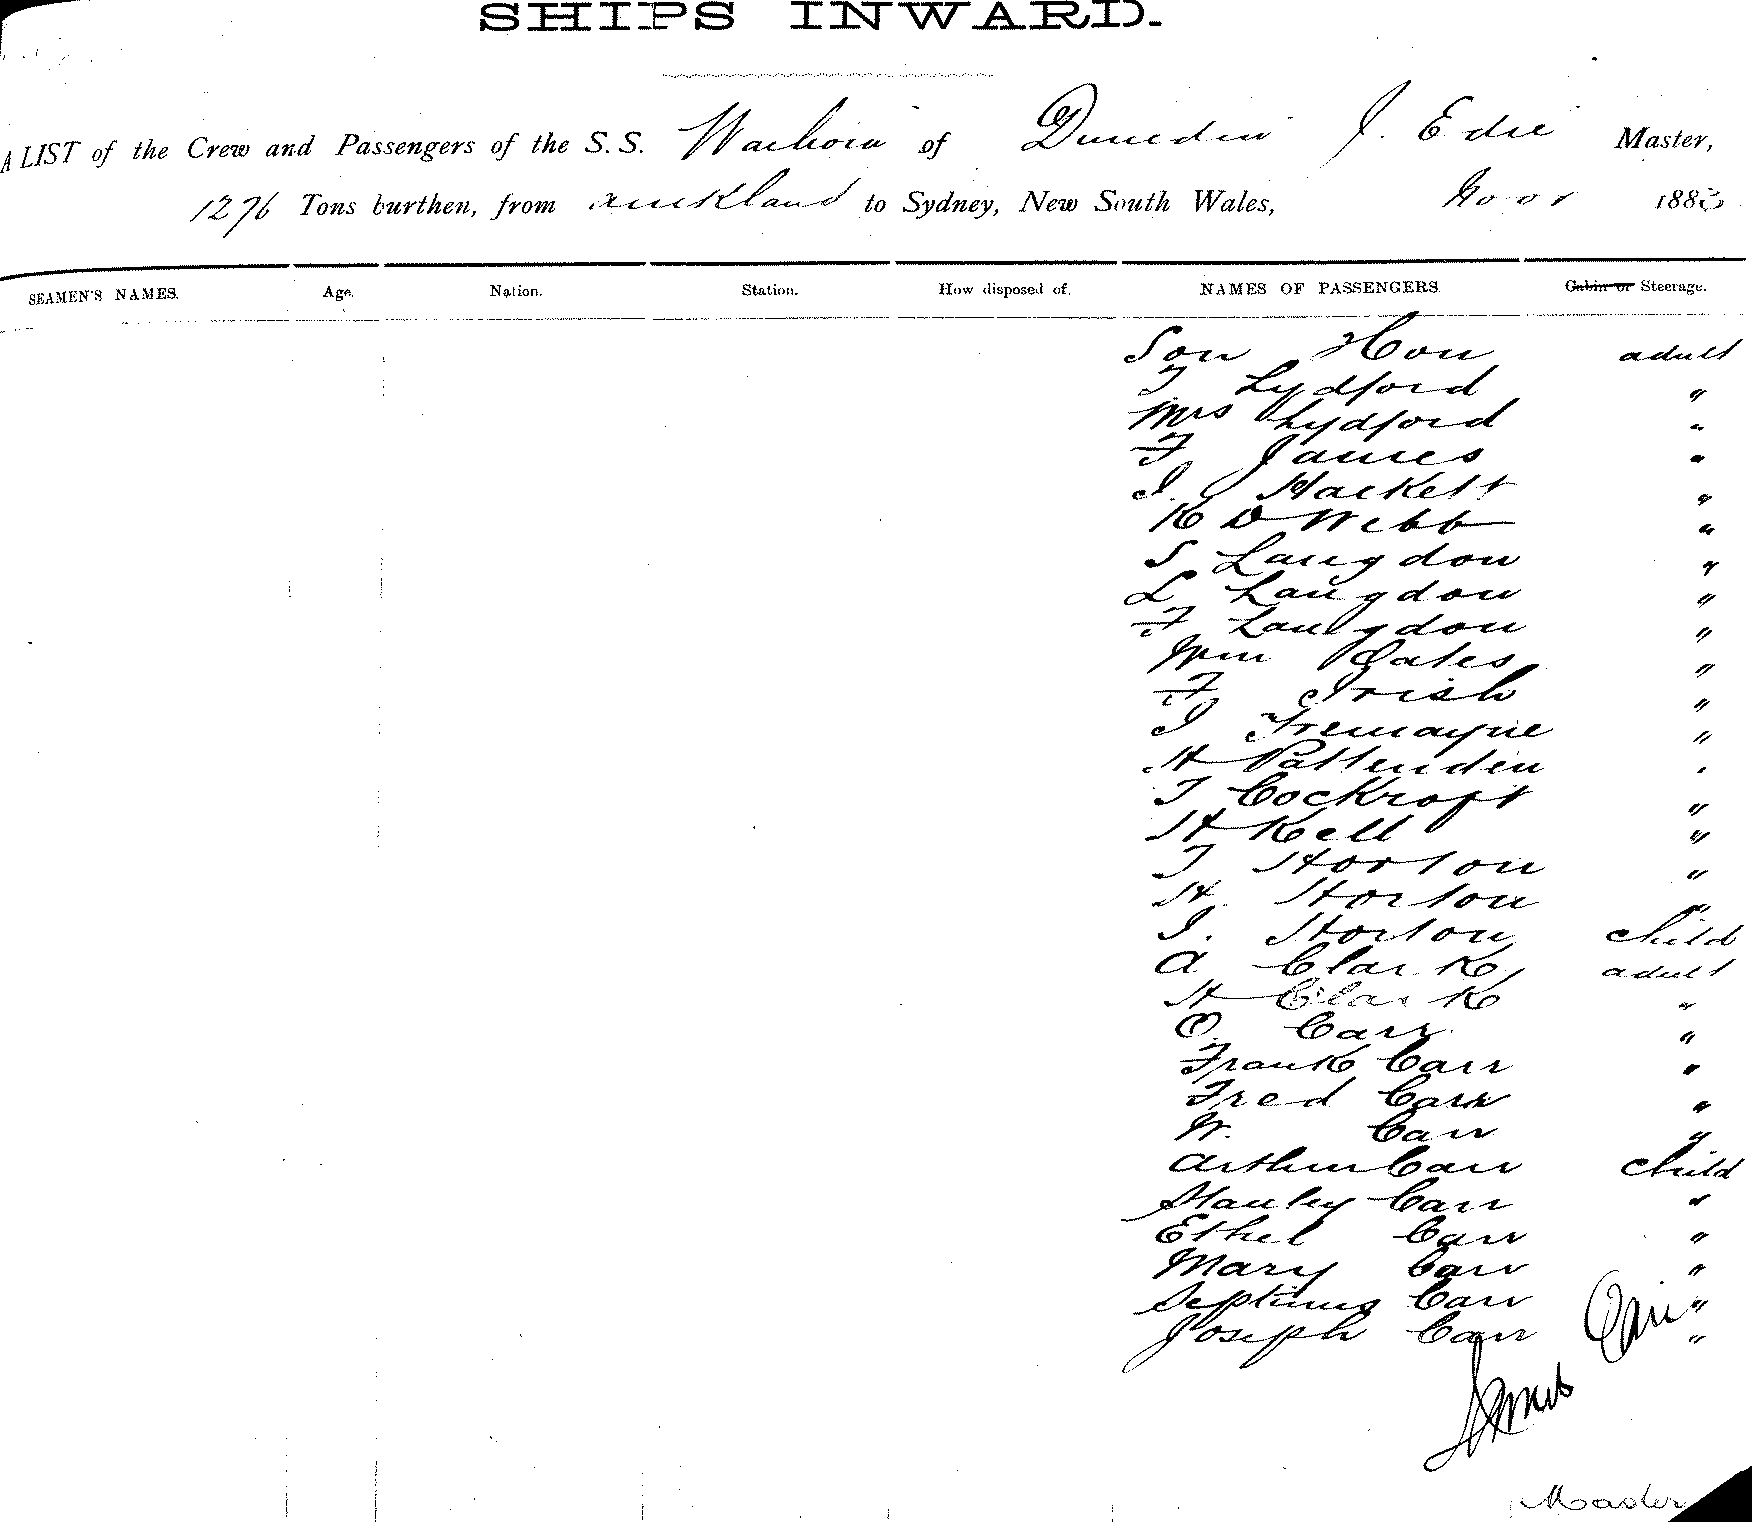 SHIPS INWARD.
A LIST of the Crew and Passengers of the S.S. Waihora of Dunedin J. Edie Master,
1276 Tons burthen, from Auckland to Sydney, New South Wales, 1883
SEAMEN'S NAMES. Age. Nation. Station. How disposed of. NAMES OF PASSENGERS. Cabin or Steerage.
Son Hon adult
T Lydford "
Mrs Lydford "
F James "
J. Hackett "
K D Webb "
S Langdon "
L Langdon "
F Langdon "
Wm Oates "
F Irish "
J Tremayne "
H Pattenden "
T Cockroft "
H Kell "
T Horton "
H. Horton "
J. Horton child
A Clark adult
H Clark "
O. Carr "
Frank Carr "
Fred Carr "
W. Carr "
Arthur Carr child
Stanley Carr "
Ethel Carr "
Mary Carr "
Septimus Carr "
Joseph Carr "
James Edie
Master